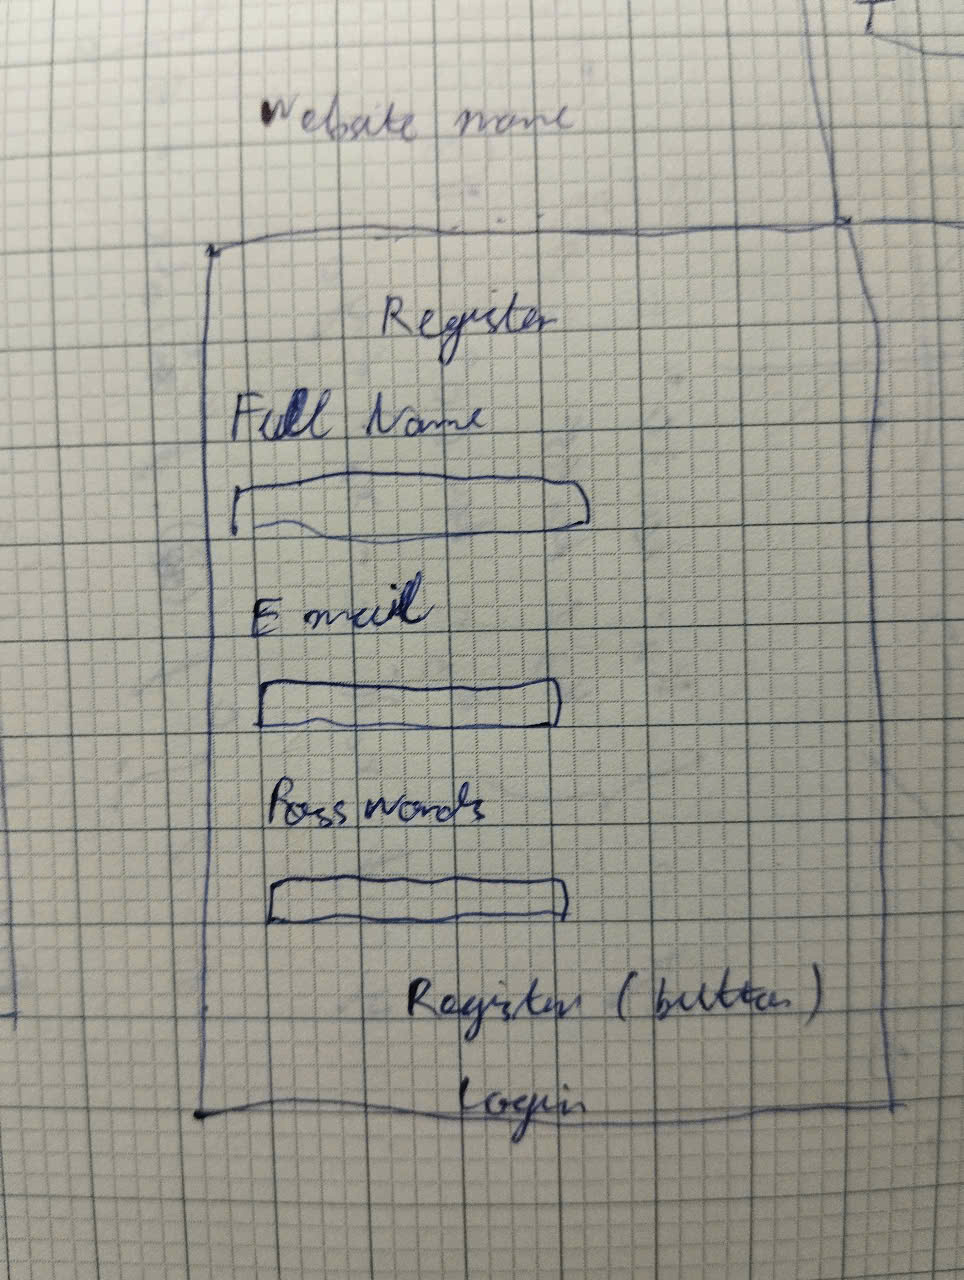 Website name
Register
Full Name
E mail
Passwords
Register (button)
Login